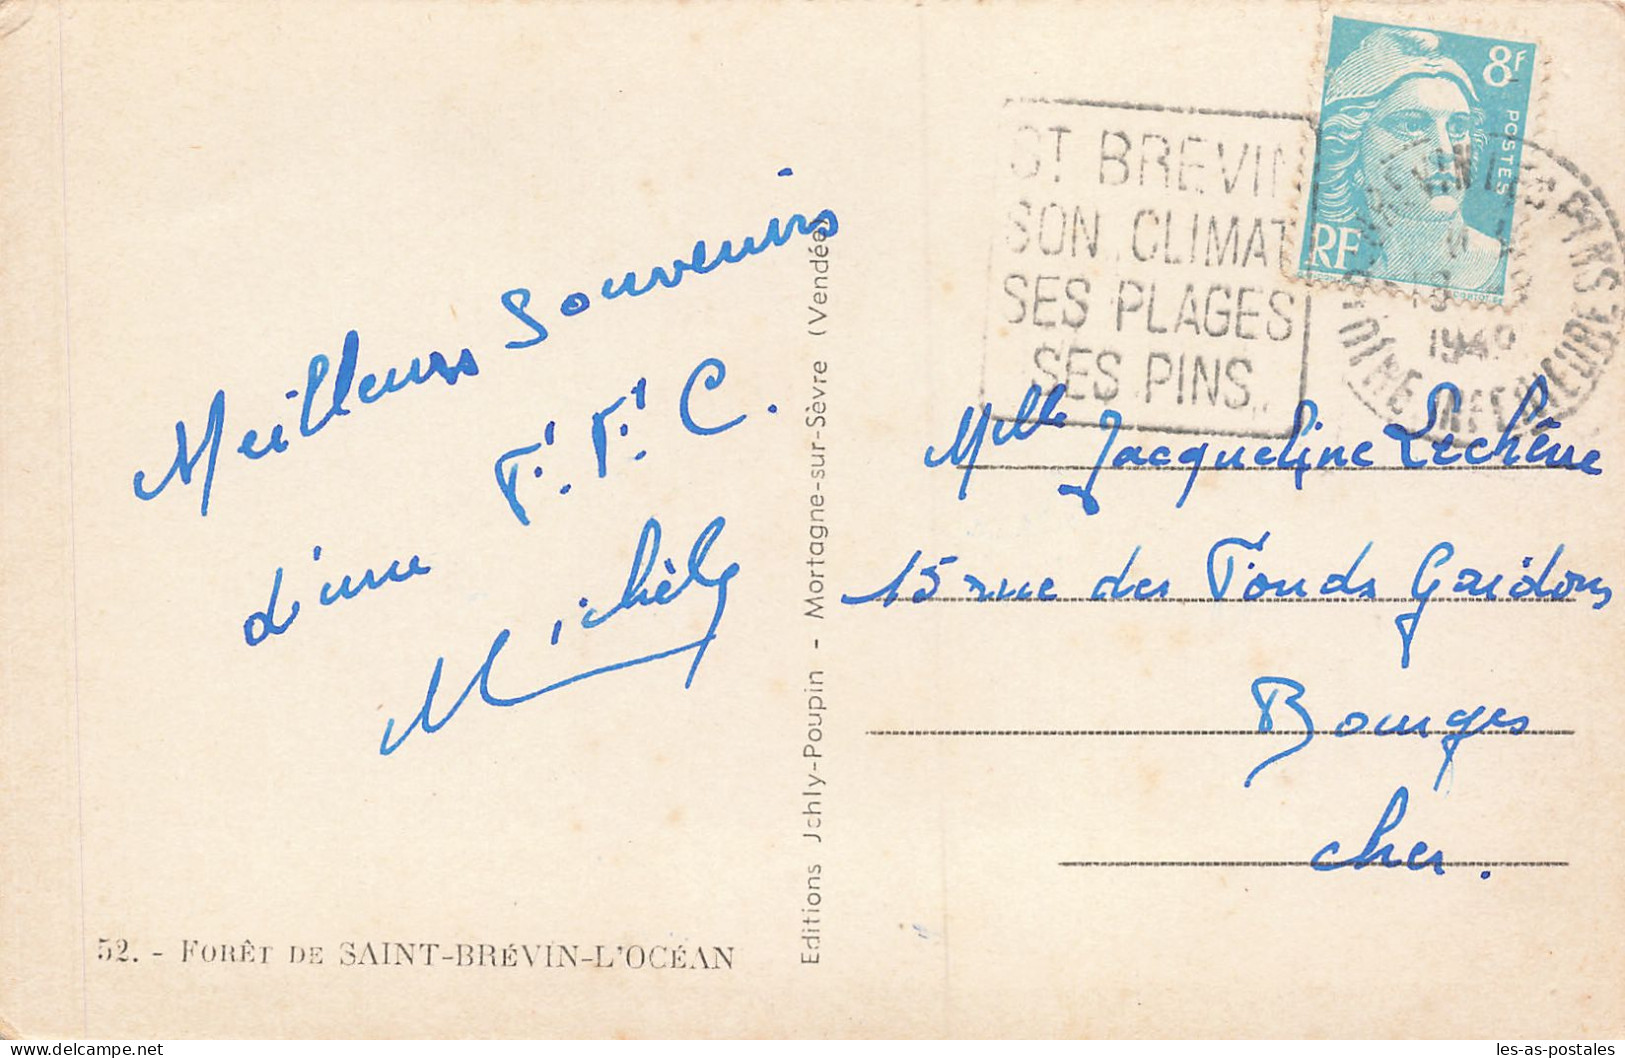 Meilleurs Souvenirs
d'une F. F. C.
Michèle
52. - FORÊT DE SAINT-BRÉVIN-L'OCÉAN
Editions Jehly-Poupin - Mortagne-sur-Sèvre (Vendée)
ST BREVIN
SON CLIMAT
SES PLAGES
SES PINS
8F
POSTES
RF
BREVIN LES PINS
LOIRE INFERIEURE
Melle Jacqueline Lechêne
15 rue des Fonds Gaidons
Bourges
Cher.
les-as-postales